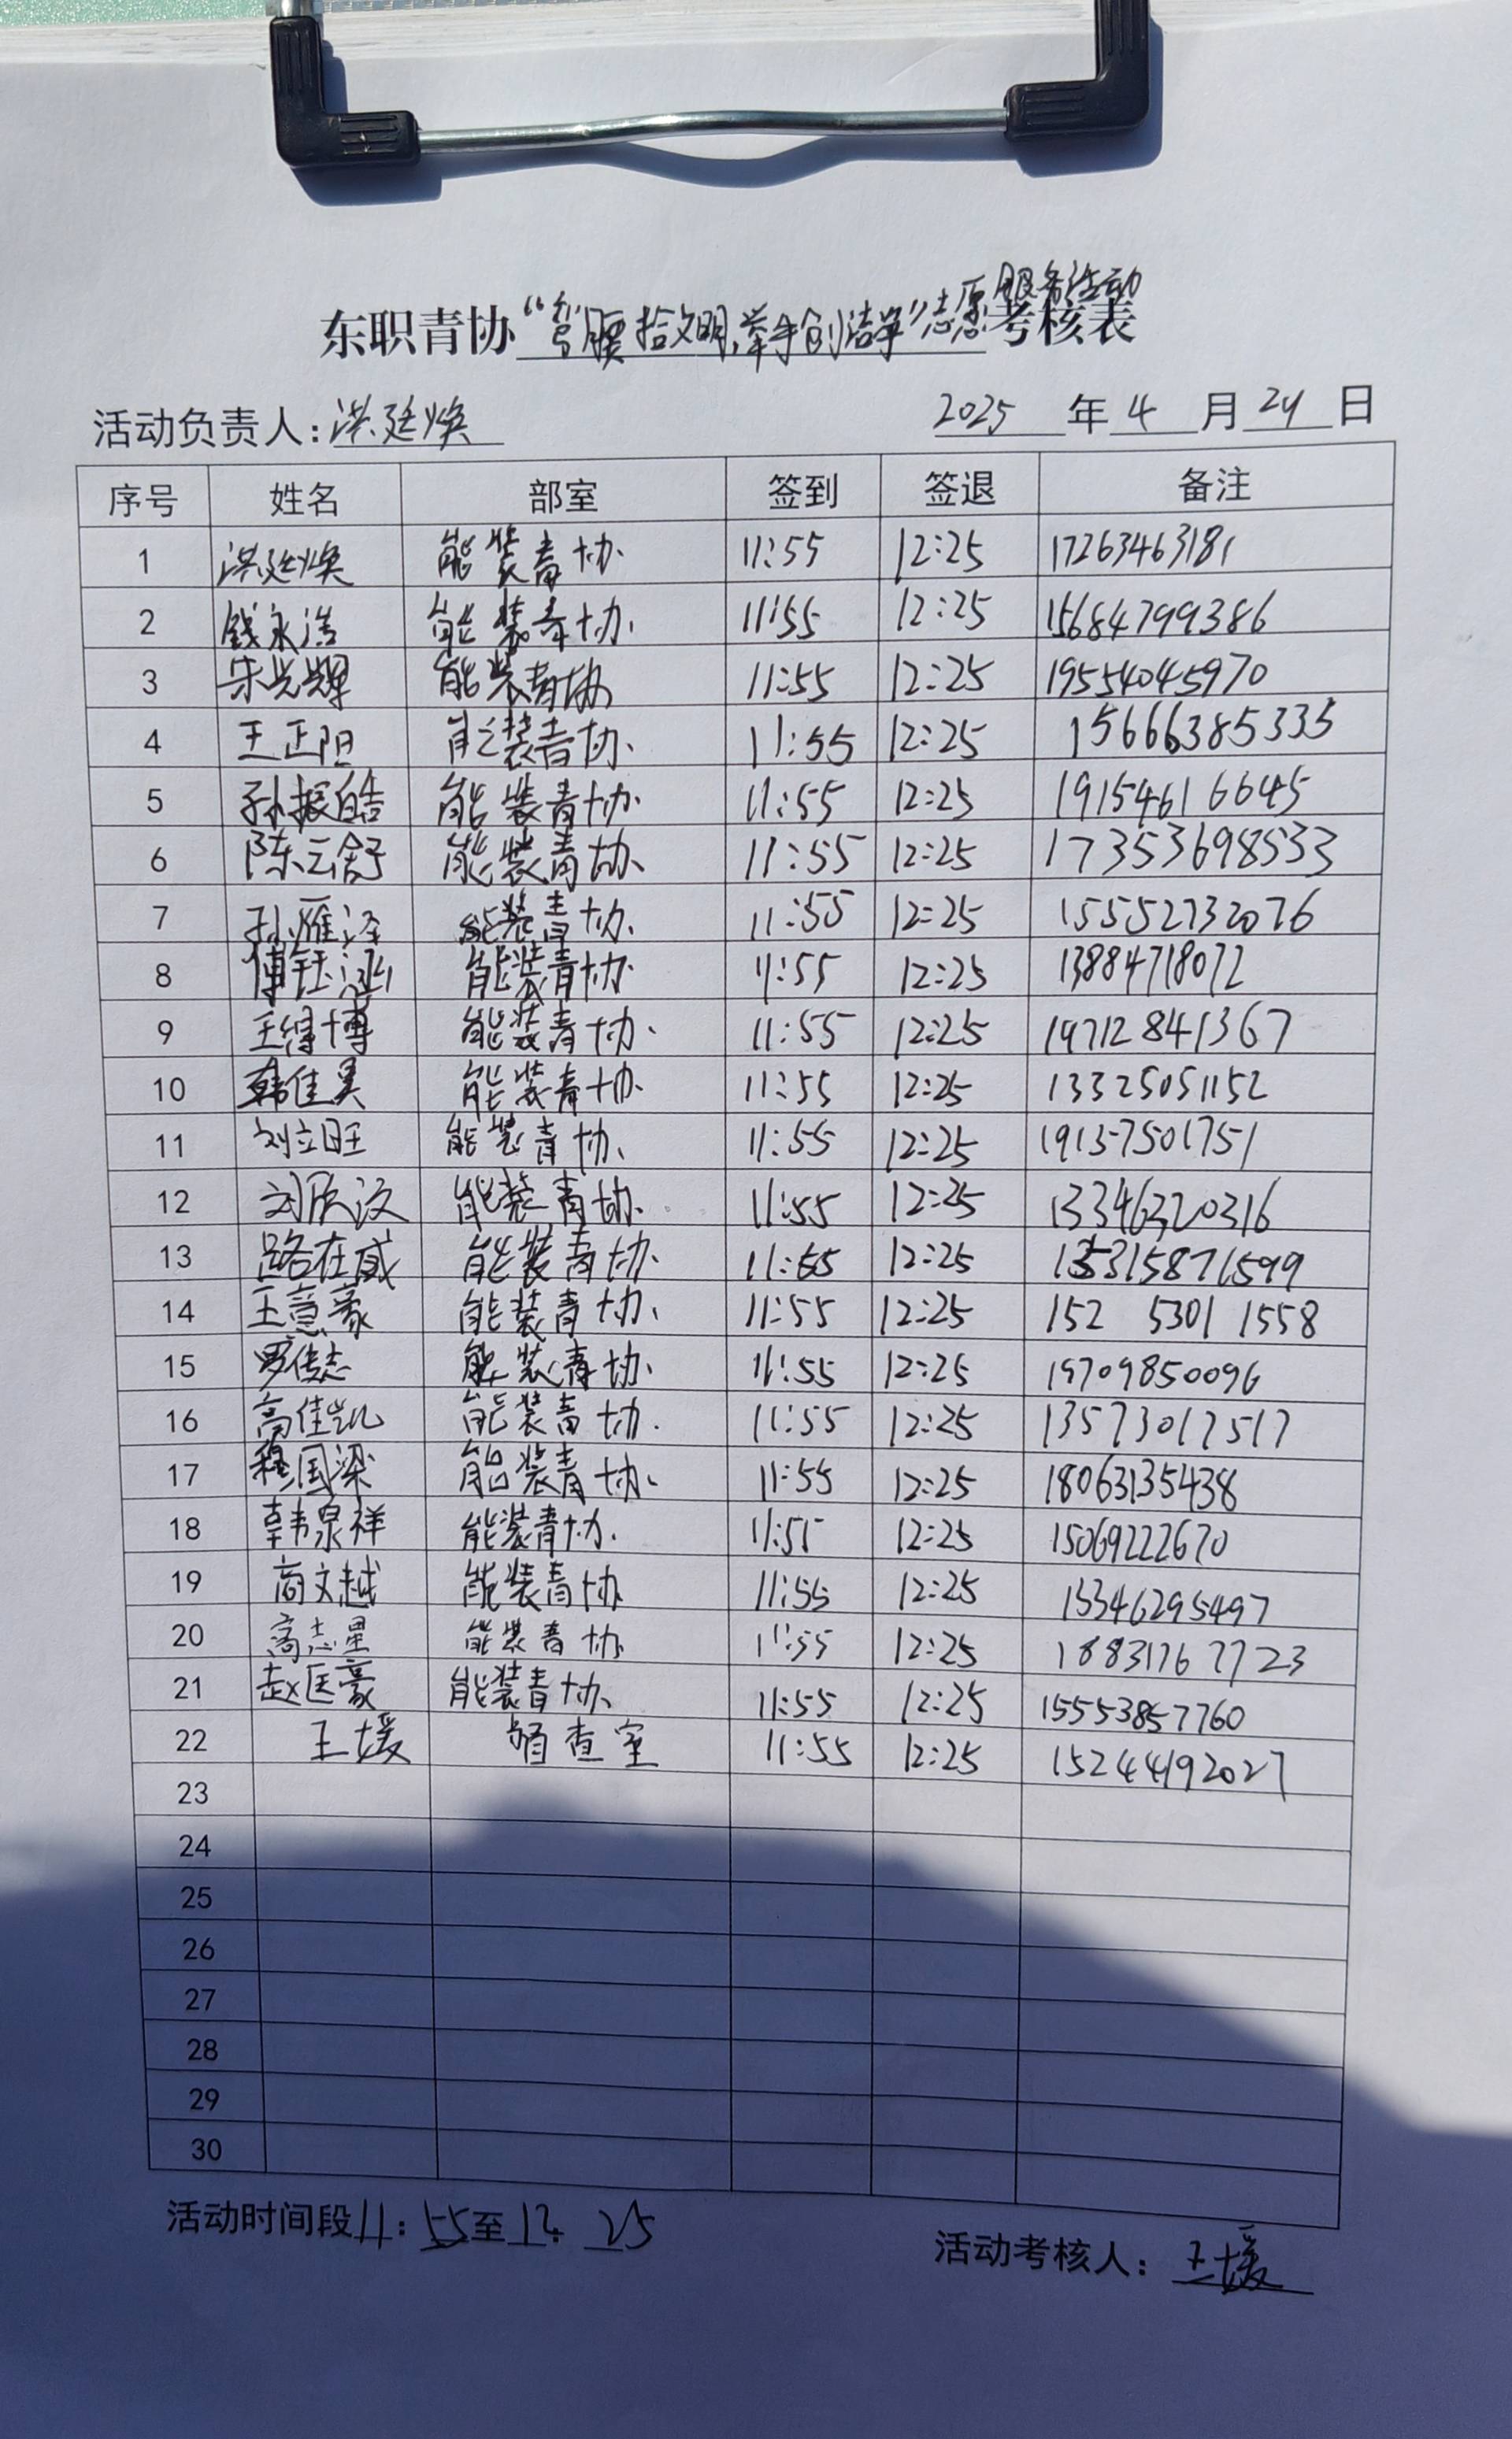 服务活动
东职青协“弯腰拾文明,牵手创洁净”志愿考核表
活动负责人:洪廷焕 2025 年 4 月 24 日
序号 姓名 部室 签到 签退 备注
1 洪廷焕 能装青协 11:55 12:25 17263463181
2 钱永浩 能装青协 11:55 12:25 15684799386
3 宋光辉 能装青协 11:55 12:25 19554045970
4 王正阳 能装青协 11:55 12:25 15666385335
5 孙振皓 能装青协 11:55 12:25 19154616645
6 陈云舒 能装青协 11:55 12:25 17353698533
7 孙雁泽 能装青协 11:55 12:25 15552732076
8 傅钰涵 能装青协 11:55 12:25 13884718072
9 王缔博 能装青协 11:55 12:25 19712841367
10 韩佳昊 能装青协 11:55 12:25 13325051152
11 刘立旺 能装青协 11:55 12:25 19137501751
12 刘欣汶 能装青协 11:55 12:25 13346320316
13 路在威 能装青协 11:55 12:25
14 王意豪 能装青协 11:55 12:25 152 5301 1558
15 罗传志 能装青协 11:55 12:25 19709850096
16 高佳凯 能装青协 11:55 12:25 13573017517
17 穆国梁 能装青协 11:55 12:25 18063135438
18 韩泉祥 能装青协 11:55 12:25 15069222670
19 商文越 能装青协 11:55 12:25 13346295497
20 高志星 能装青协 11:55 12:25 18831767723
21 赵匡豪 能装青协 11:55 12:25 15553857760
22 王媛 督查室 11:55 12:25 15244192027
23
24
25
26
27
28
29
30
活动时间段11:55至12:25
活动考核人:王媛